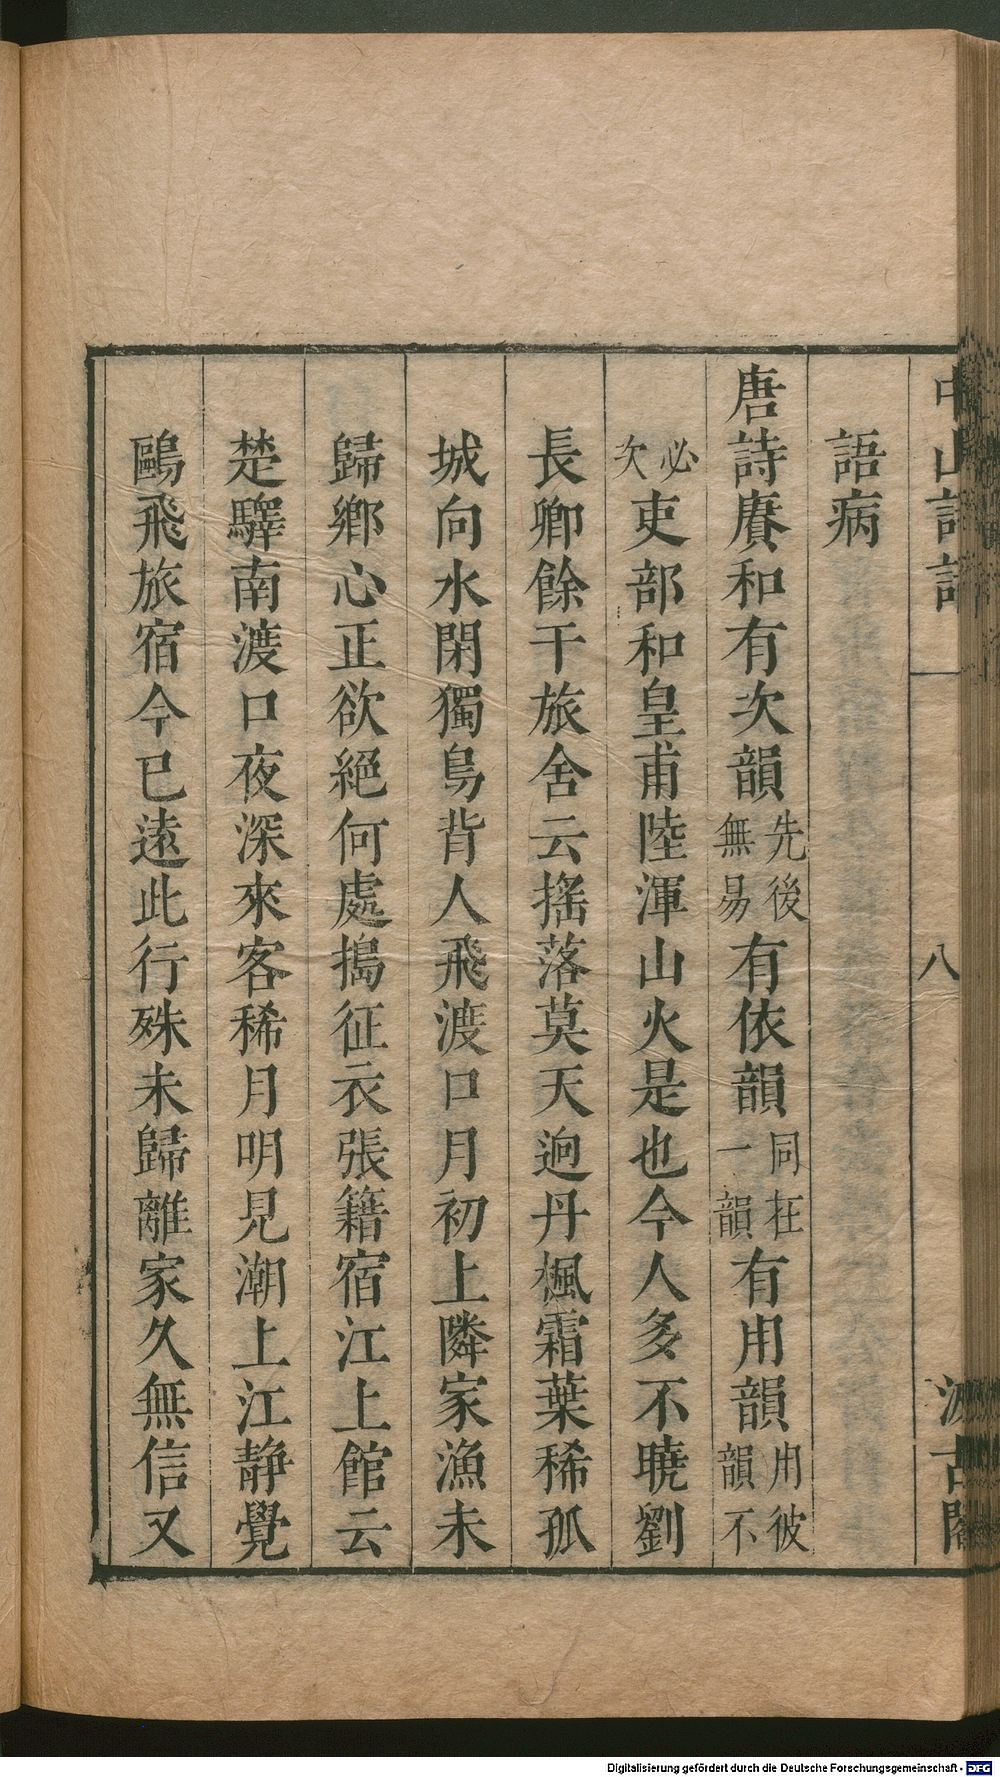 中山詩話 八 汲古閣
語病
唐詩賡和有次韻先後無易有依韻同在一韻有用韻用彼韻不
必次吏部和皇甫陸渾山火是也今人多不曉劉
長卿餘干旅舍云搖落莫天迥丹楓霜葉稀孤
城向水閉獨鳥背人飛渡口月初上隣家漁未
歸鄉心正欲絕何處搗征衣張籍宿江上館云
楚驛南渡口夜深來客稀月明見潮上江靜覺
鷗飛旅宿今已遠此行殊未歸離家久無信又
Digitalisierung gefördert durch die Deutsche Forschungsgemeinschaft - DFG